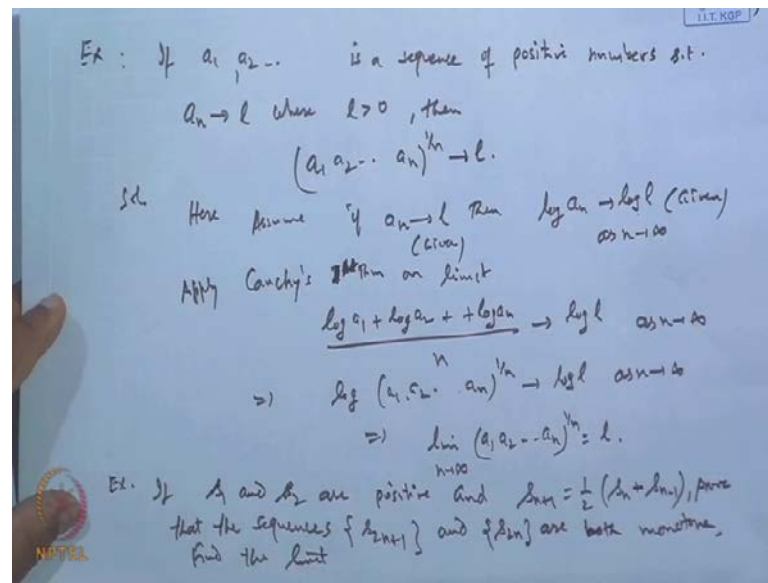 I.I.T. KGP
Ex : If a1, a2 .. is a sequence of positive numbers s.t.
an → l where l > 0, then
(a1 a2 .. an)^1/n → l.
Sol. Here Assume if an → l then log an → log l (Given)
(Given) as n→∞
Apply Cauchy's Thm on limit
log a1 + log a2 + + log an → log l as n→∞
n
=> log (a1. a2. an)^1/n → log l as n→∞
=> lim (a1 a2 -.. an)^1/n = l.
n→∞
Ex. If s1 and s2 are positive and sn+1 = 1/2 (sn + sn-1), prove
that the sequences {s2n+1} and {s2n} are both monotone,
Find the limit
NPTEL